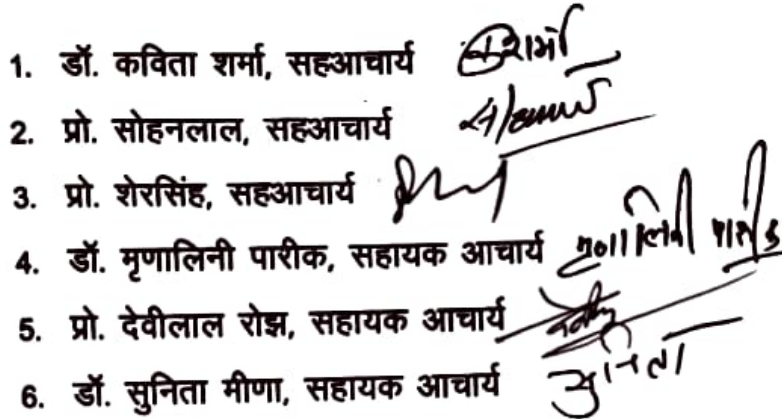 1. डॉ. कविता शर्मा, सहआचार्य
2. प्रो. सोहनलाल, सहआचार्य
3. प्रो. शेरसिंह, सहआचार्य
4. डॉ. मृणालिनी पारीक, सहायक आचार्य मृणालिनी पारीक
5. प्रो. देवीलाल रोझ, सहायक आचार्य
6. डॉ. सुनिता मीणा, सहायक आचार्य सुनिता